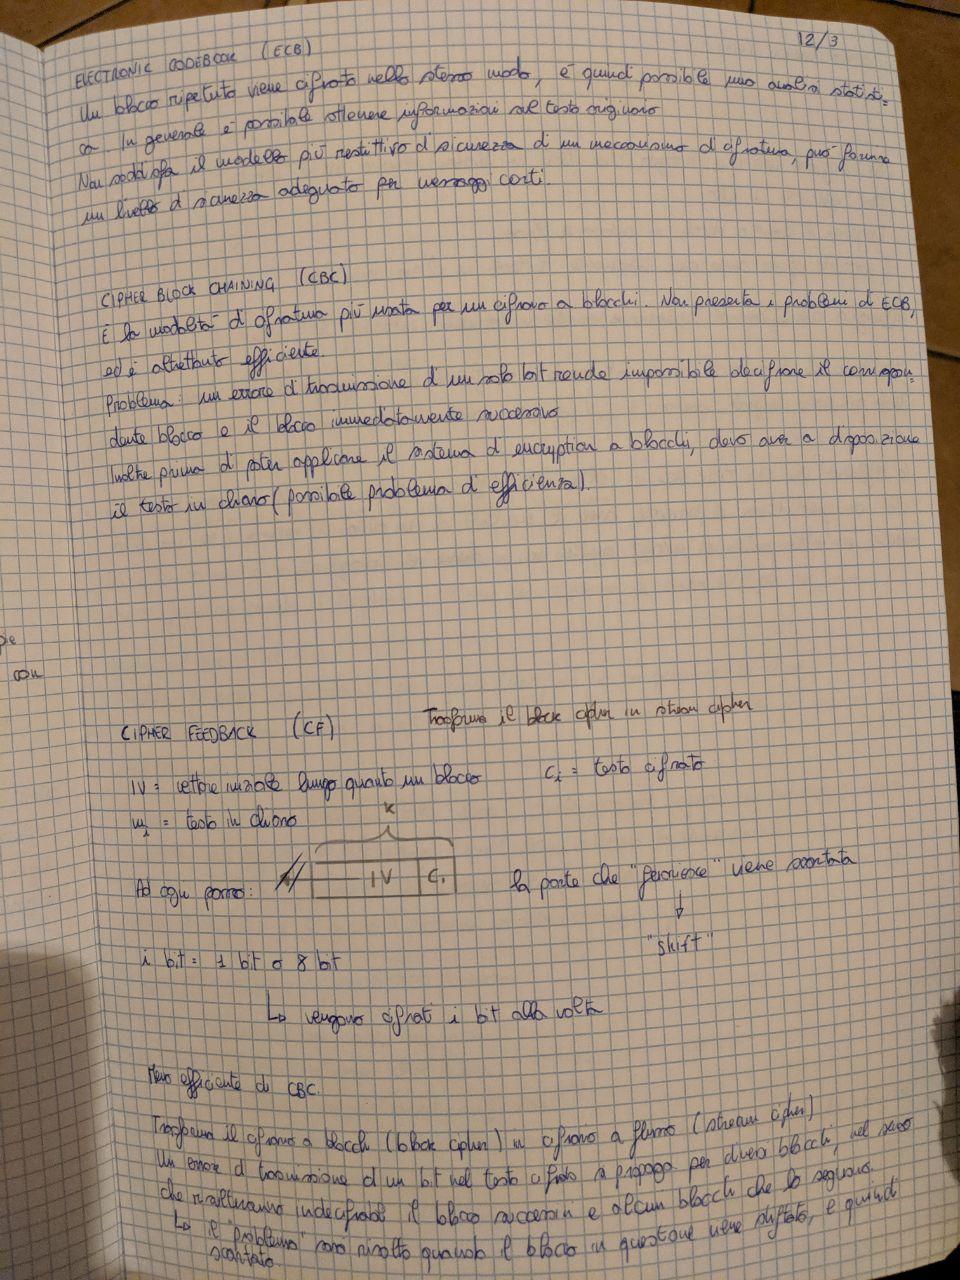 12/3
ELECTRONIC CODEBOOK (ECB)
Un blocco ripetuto viene cifrato nello stesso modo, è quindi possibile una analisi statisti=
ca. In generale è possibile ottenere informazioni sul testo originario
Non soddisfa il modello più restrittivo di sicurezza di un meccanismo di cifratura, può fornire
un livello di sicurezza adeguato per messaggi corti.
CIPHER BLOCK CHAINING (CBC)
È la modalità di cifratura più usata per un cifrario a blocchi. Non presenta i problemi di ECB,
ed è altrettanto efficiente.
Problema: un errore di trasmissione di un solo bit rende impossibile decifrare il corrispon=
dente blocco e il blocco immediatamente successivo
Inoltre prima di poter applicare il sistema di encryption a blocchi, devo aver a disposizione
il testo in chiaro (possibile problema di efficienza).
pie
con
CIPHER FEEDBACK (CF) Trasforma il block cipher in stream cipher
IV = vettore iniziale lungo quanto un blocco ci = testo cifrato
mi = testo in chiaro
K
Ad ogni passo: IV C1 la parte che "fuoriesce" viene scartata
"shift"
i bit = 1 bit o 8 bit
↳ vengono cifrati i bit alla volta
Meno efficiente di CBC.
Trasforma il cifrario a blocchi (block cipher) in cifrario a flusso (stream cipher)
Un errore di trasmissione di un bit nel testo cifrato si propaga per diversi blocchi, nel senso
che risulteranno indecifrabili il blocco successivo e alcuni blocchi che lo seguono.
↳ il "problema" sarà risolto quando il blocco in questione viene shiftato, e quindi
scartato.